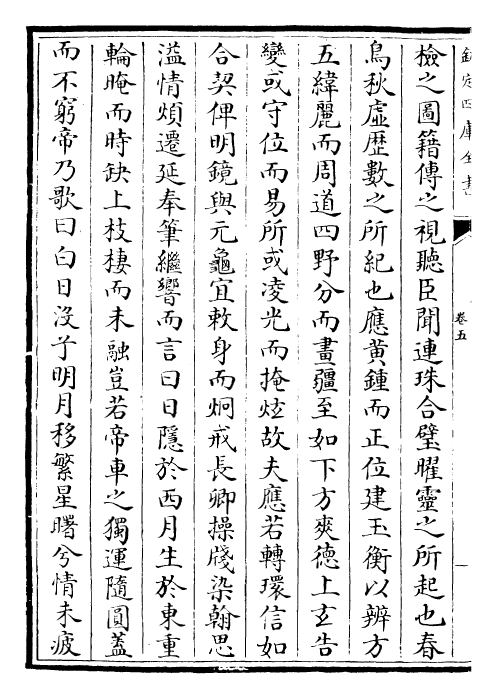 欽定四庫全書
卷五
一
檢之圖籍傳之視聽臣聞連珠合璧曜靈之所起也春
鳥秋虛歴數之所紀也應黄鍾而正位建玉衡以辨方
五緯麗而周道四野分而畫疆至如下方爽德上𤣥告
變或守位而易所或凌光而掩炫故夫應若轉環信如
合契俾明鏡與元龜宜敕身而炯戒長卿操牋染翰思
溢情煩遷延奉筆繼響而言曰日隱於西月生於東重
輪晻而時缺上枝棲而未融豈若帝車之獨運隨圓蓋
而不窮帝乃歌曰白日沒兮明月移繁星曙兮情未疲